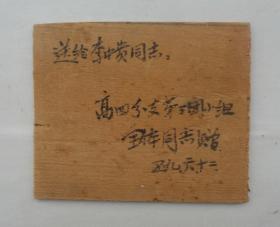 送给李贵同志：
高四分支第三团小组
全体同志赠
五九.六.十二